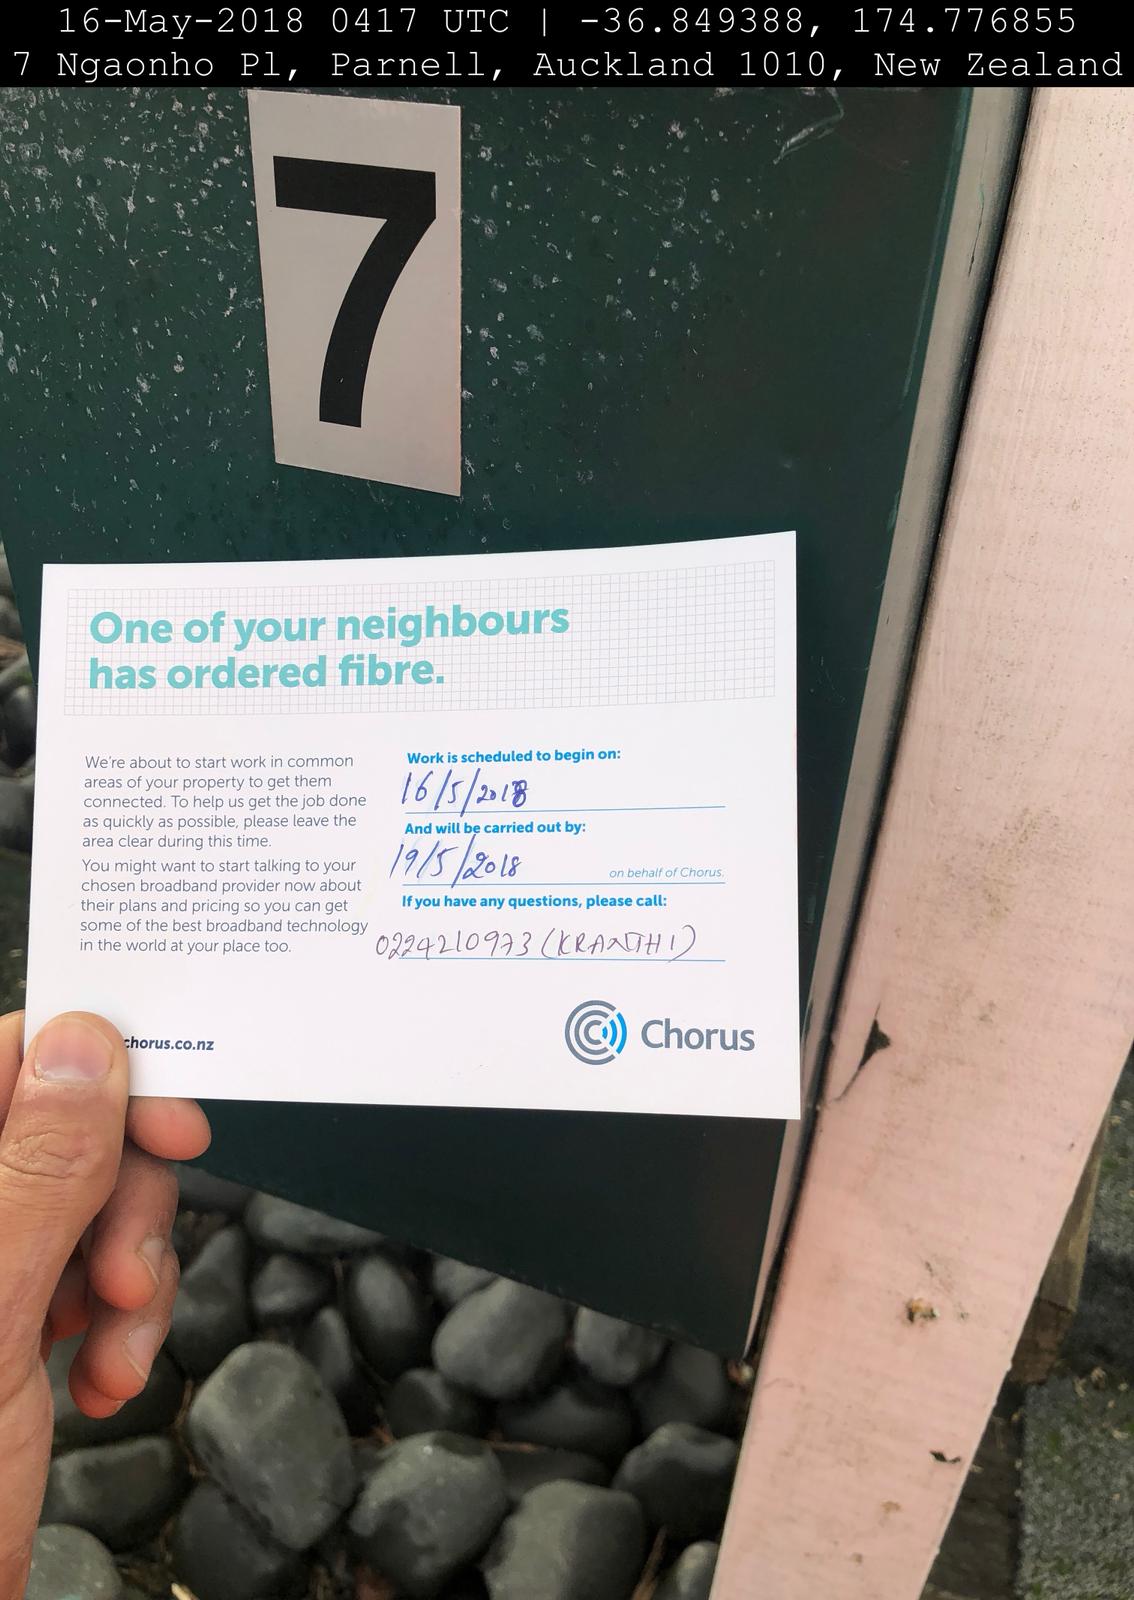 16-May-2018 0417 UTC | -36.849388, 174.776855
7 Ngaonho Pl, Parnell, Auckland 1010, New Zealand
7
One of your neighbours
has ordered fibre.
We're about to start work in common
areas of your property to get them
connected. To help us get the job done
as quickly as possible, please leave the
area clear during this time.
You might want to start talking to your
chosen broadband provider now about
their plans and pricing so you can get
some of the best broadband technology
in the world at your place too.
Work is scheduled to begin on:
16/5/2018
And will be carried out by:
19/5/2018 on behalf of Chorus.
If you have any questions, please call:
0224210973 (KRANTHI)
chorus.co.nz
Chorus